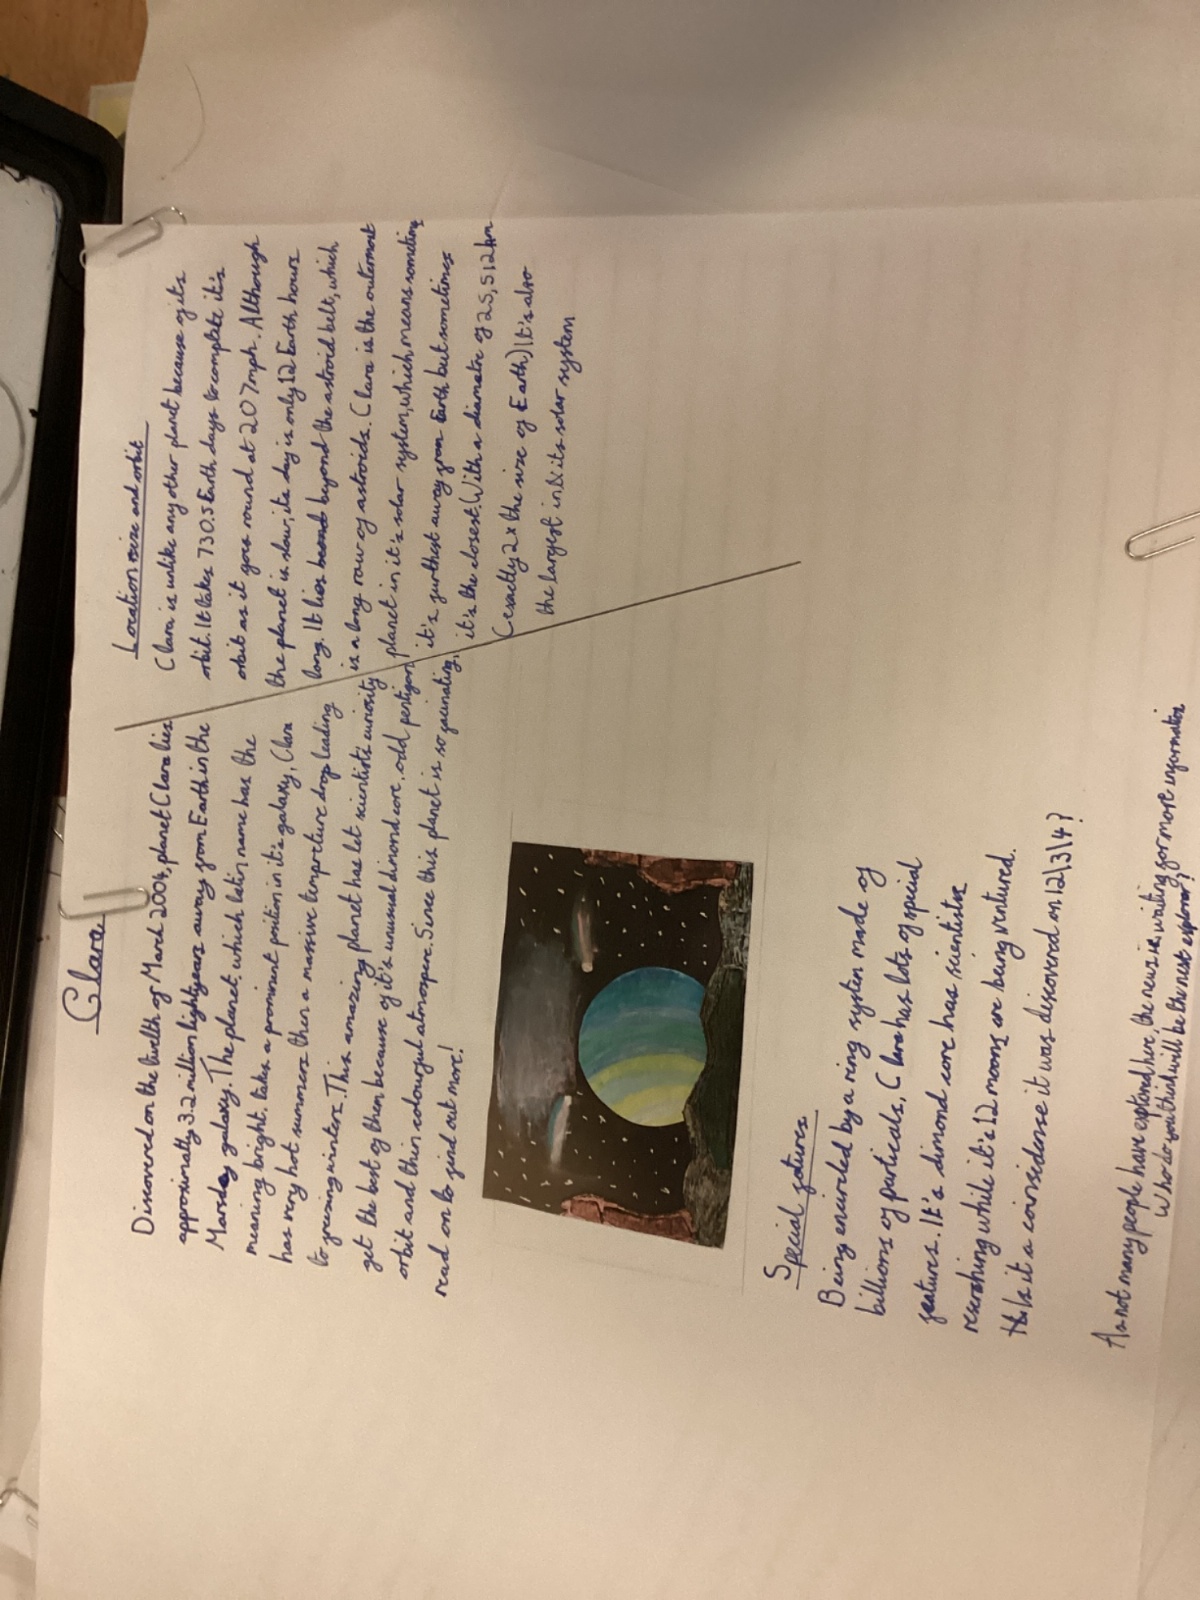 Clara
Discovered on the twelth of March 2004, planet Clara lies
approximally 3.2 million lightyears away from Earth in the
galaxy. The planet, which latin name has the
meaning bright, takes a prominent position in it's galaxy, Clara
has very hot summers then a massive tempreture drop leading
to winters. This amazing planet has let scientists curiosity
get the best of them because of it's unusual dimond core, odd
orbit and thin colourful atmospere. Since this planet is so facinating,
read on to find out more!
Location size and orbit
Clara is unlike any other planet because of its
orbit. It takes 730.5 Earth days to complete it's
orbit as it goes round at 207mph. Although
the planet is slow, its day is only 12 Earth hours
long. It lies beyond the astroid belt, which
is a long row of astroids. Clara is the outermost
planet in it's solar system, which means sometimes
it's furthest away from Earth but sometimes
it's the closest. With a diametre of 25,512km
(exactly 2x the size of Earth) It's also
the largest in its solar system
Special fetures
Being encircled by a ring system made of
billions of particals, Clara has lots of special
features. It's dimond core has scientists
reserching while it's 12 moons are being ventured.
Is it a considense it was discovered on 12\3\4?
As not many people have explored here, the news is waiting for more information
Who do you think will be the next explorer?